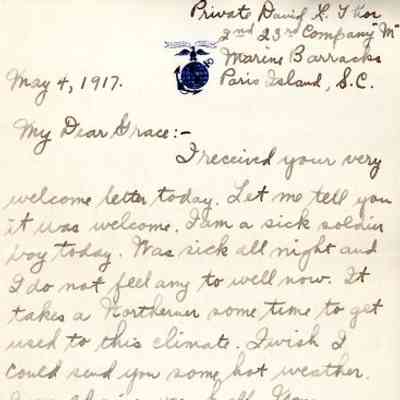 Private David L.
2nd 23rd Company "M"
Marine Barracks
May 4, 1917. Paris Island, S.C.
My Dear Grace:-
I received your very
welcome letter today. Let me tell you
it was welcome. I am a sick soldier
boy today. Was sick all night and
I do not feel any to well now. It
takes a Northerner some time to get
used to this climate. I wish I
could send you some hot weather.